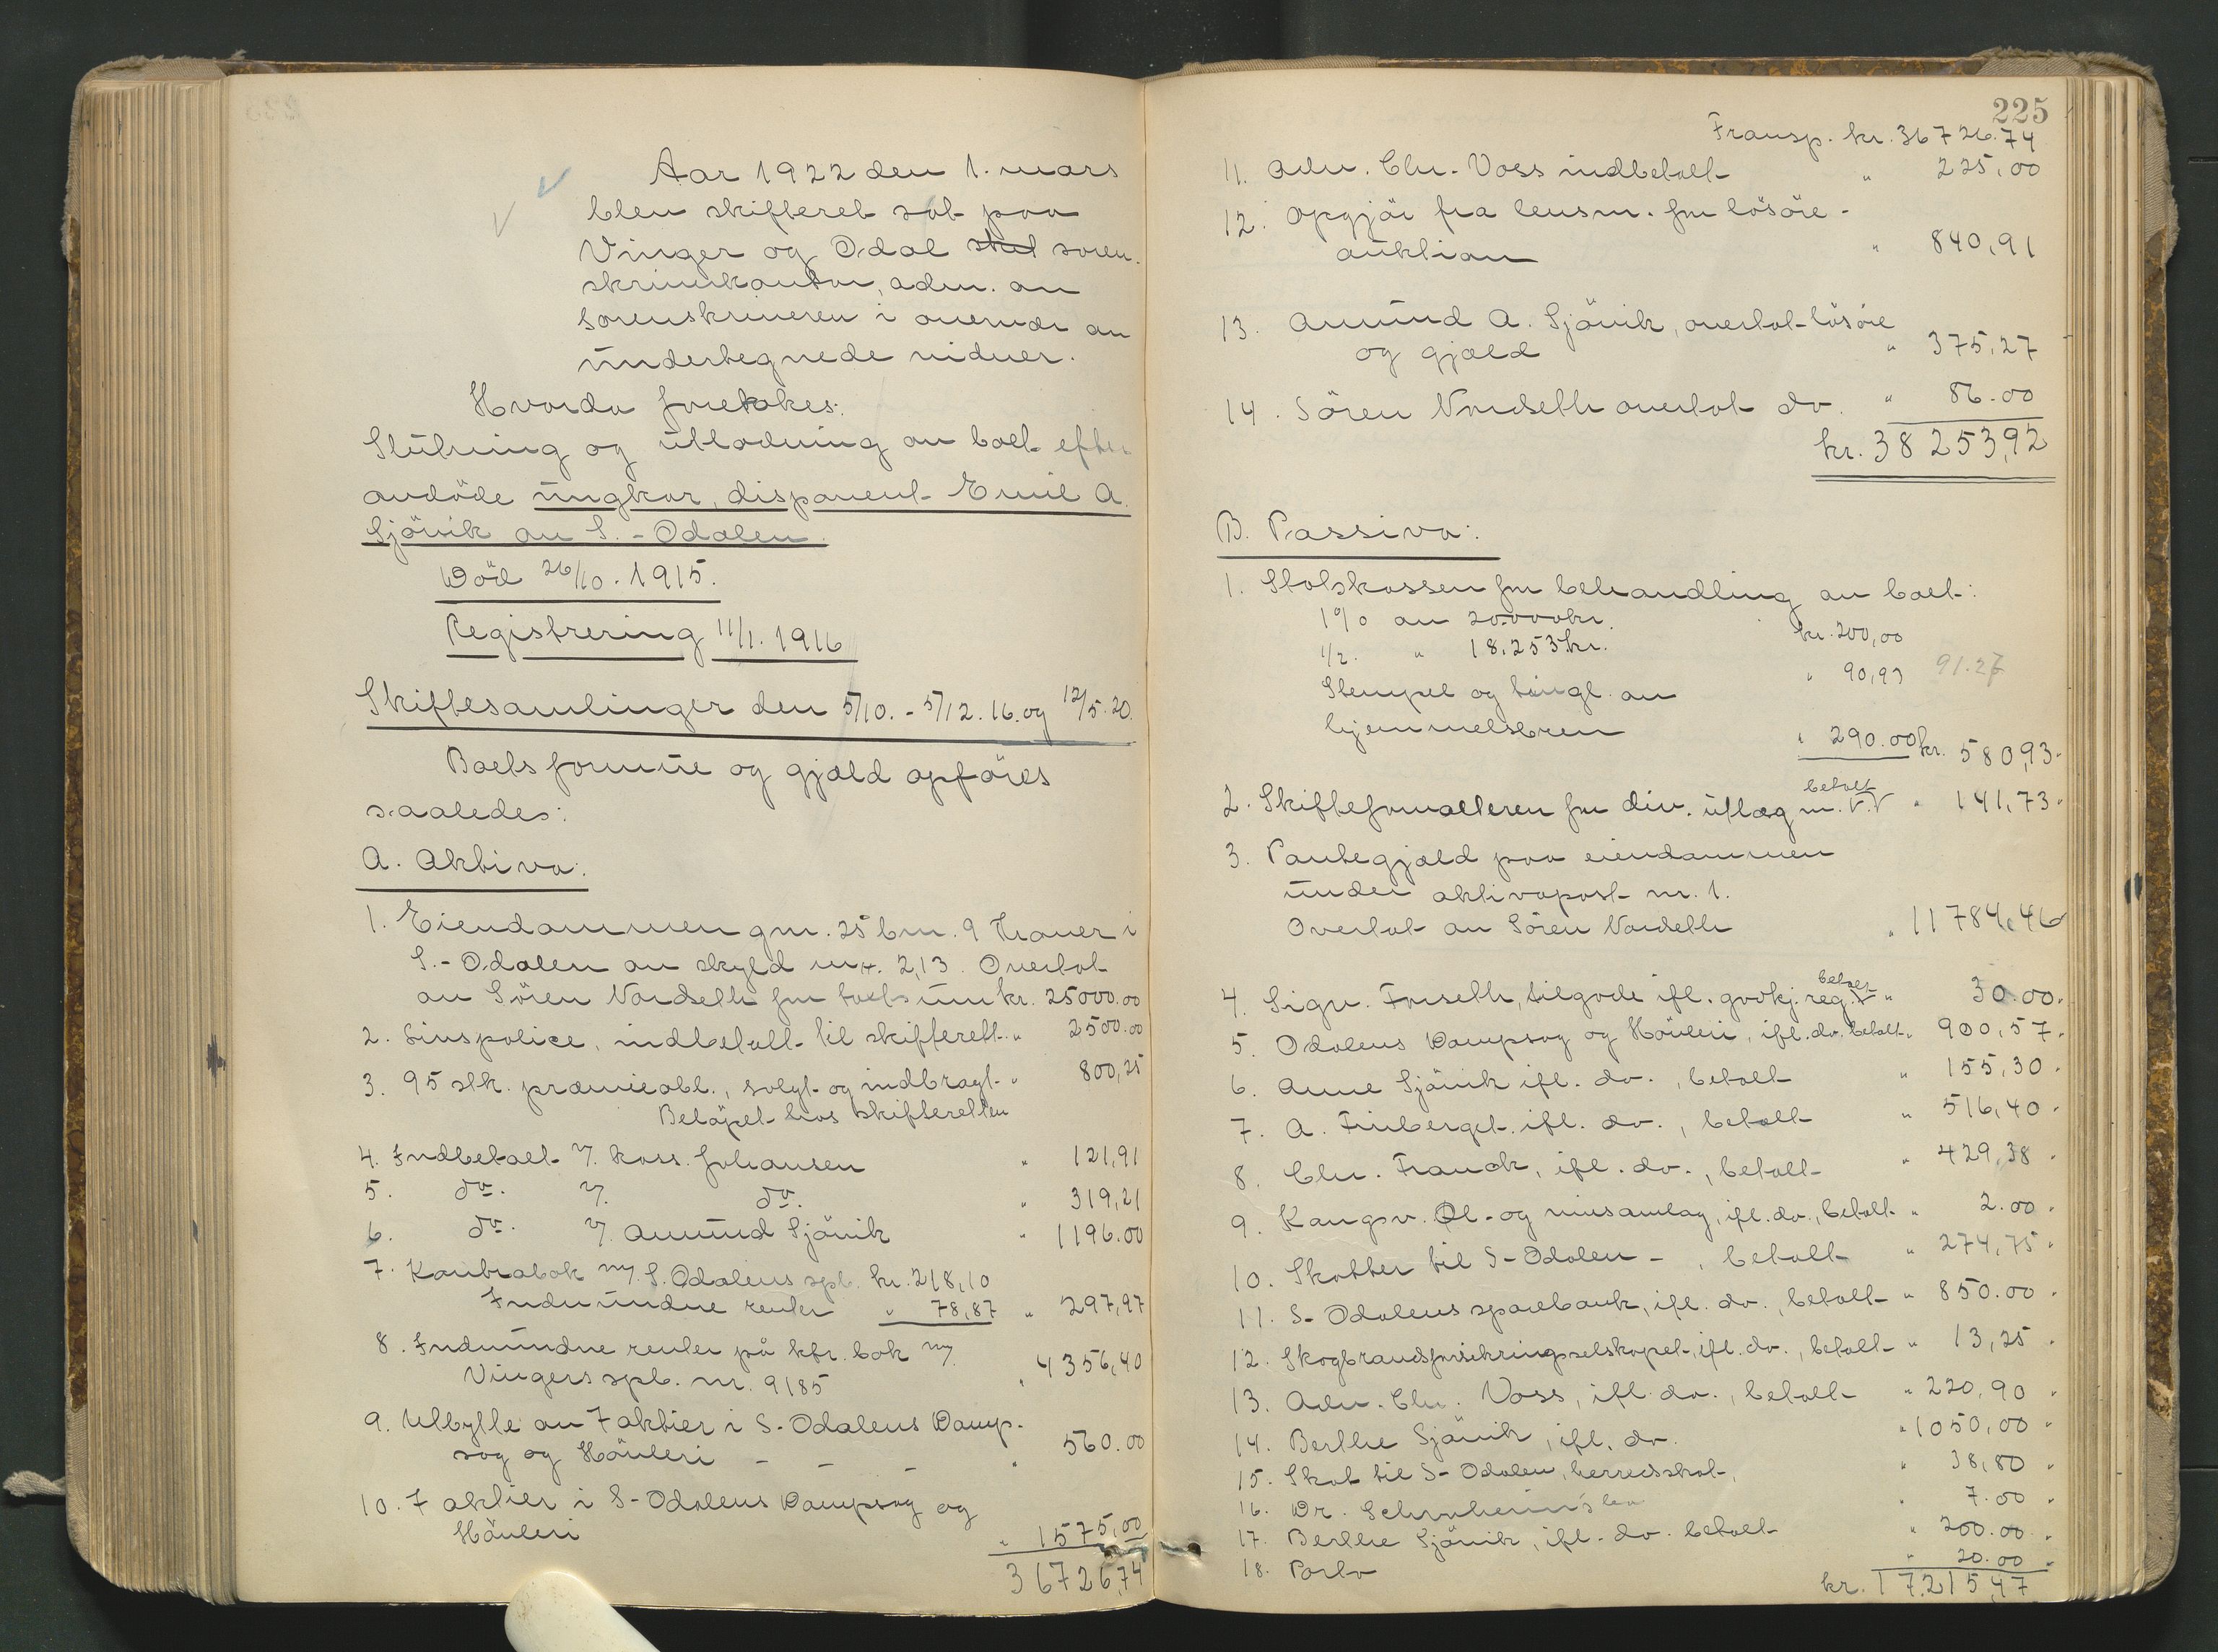 Aar 1922 den 1. mars
blev skifteret sat paa
Vinger og Odal skif soren-
skriverkontor, adm. av
Sorenskriveren i overvær av
undertegnede vidner.
Hvorda foretokes:
Slutning og utlodning av boet efter
avdöde ungkar, disponent Emil A.
Sjövik av S.-Odalen.
Död 26/10. 1915.
Registrering 11/1. 1916
Skiftesamlinger den 5/10. - 5/12. 16. og 12/5. 20.
Boets formue og gjæld opföres
saaledes:
A. Aktiva:
1. Eiendommen gnr. 25 bnr. 9 i
S.-Odalen av skyld mrk. 2,13. Overtat
av Sören Nordseth for boets um kr. 25000.00
2. Livspolice, indbetalt til skifterett. " 2500.00
3. 95 stk. præmieobl., solgt og indbragt " 800,25
Belöpet hos skifteretten
4. Indbetalt v/ Johansen " 121,91
5. do. v/ do. " 319,21
6. do. v/ Amund Sjövik " 1196.00
7. Kontrabok m/ S. Odalens spb. kr. 218,10
Indvundne renter " 78,87 " 297,97
8. Indvundne renter på kfr. bok m/
Vingers spb. nr. 9185 " 4356,40
9. Utbytte av 7 aktier i S-Odalens Damp-
sag og Hövleri - - - " 560.00
10. 7 aktier i S-Odalens Dampsag og
Hövleri " 1575,00
36726,74
225
Transp. kr. 36726.74
11. Adv. Chr. Voss indbetalt " 225,00
12. Opgjör fra lensm. for lösöre-
auktion " 840,91
13. Amund A. Sjövik, overtat lösöre
og gjæld " 375,27
14. Sören Nordseth overtat do. " 86.00
kr. 38253,92
B. Passiva:
1. Statskassen for behandling av boet:
1% av 20.000kr. kr. 200,00
1/2. " 18.253kr. " 90,93 91.27
Stempel og tingl. av
hjemmelsbrev " 290.00 kr. 580,93
2. Skifteforvalteren for div. utlæg m. V.V betalt " 141,73
3. Pantegjæld paa eiendommen
under aktivapost nr. 1.
Overtat av Sören Nordseth " 11784,46
4. Sigv. Forseth, tilgode ifl. godkj. reg. betalt " 30.00
5. Odalens Dampsag og Hövleri, ifl. do. betalt " 900,57
6. Anne Sjövik ifl. do., betalt " 155,30
7. A. Finberget ifl. do., betalt " 516,40
8. Chr. Franck, ifl. do., betalt " 429,38
9. Kongsv. Öl- og vinsamlag, ifl. do., betalt " 2.00
10. Skatter til S-Odalen - , betalt " 274,75
11. S-Odalens sparebank, ifl. do., betalt " 850.00
12. Skogbrandforsikringsselskapet, ifl. do., betalt " 13,25
13. Adv. Chr. Voss, ifl. do., betalt " 220,90
14. Berthe Sjövik, ifl. do. " 1050,00
15. Skat til S-Odalen, herredskat, " 38,80
16. Dr. " 7.00
17. Berthe Sjövik, ifl. do. betalt " 200.00
18. Porto " 20.00
kr. 17.215,47